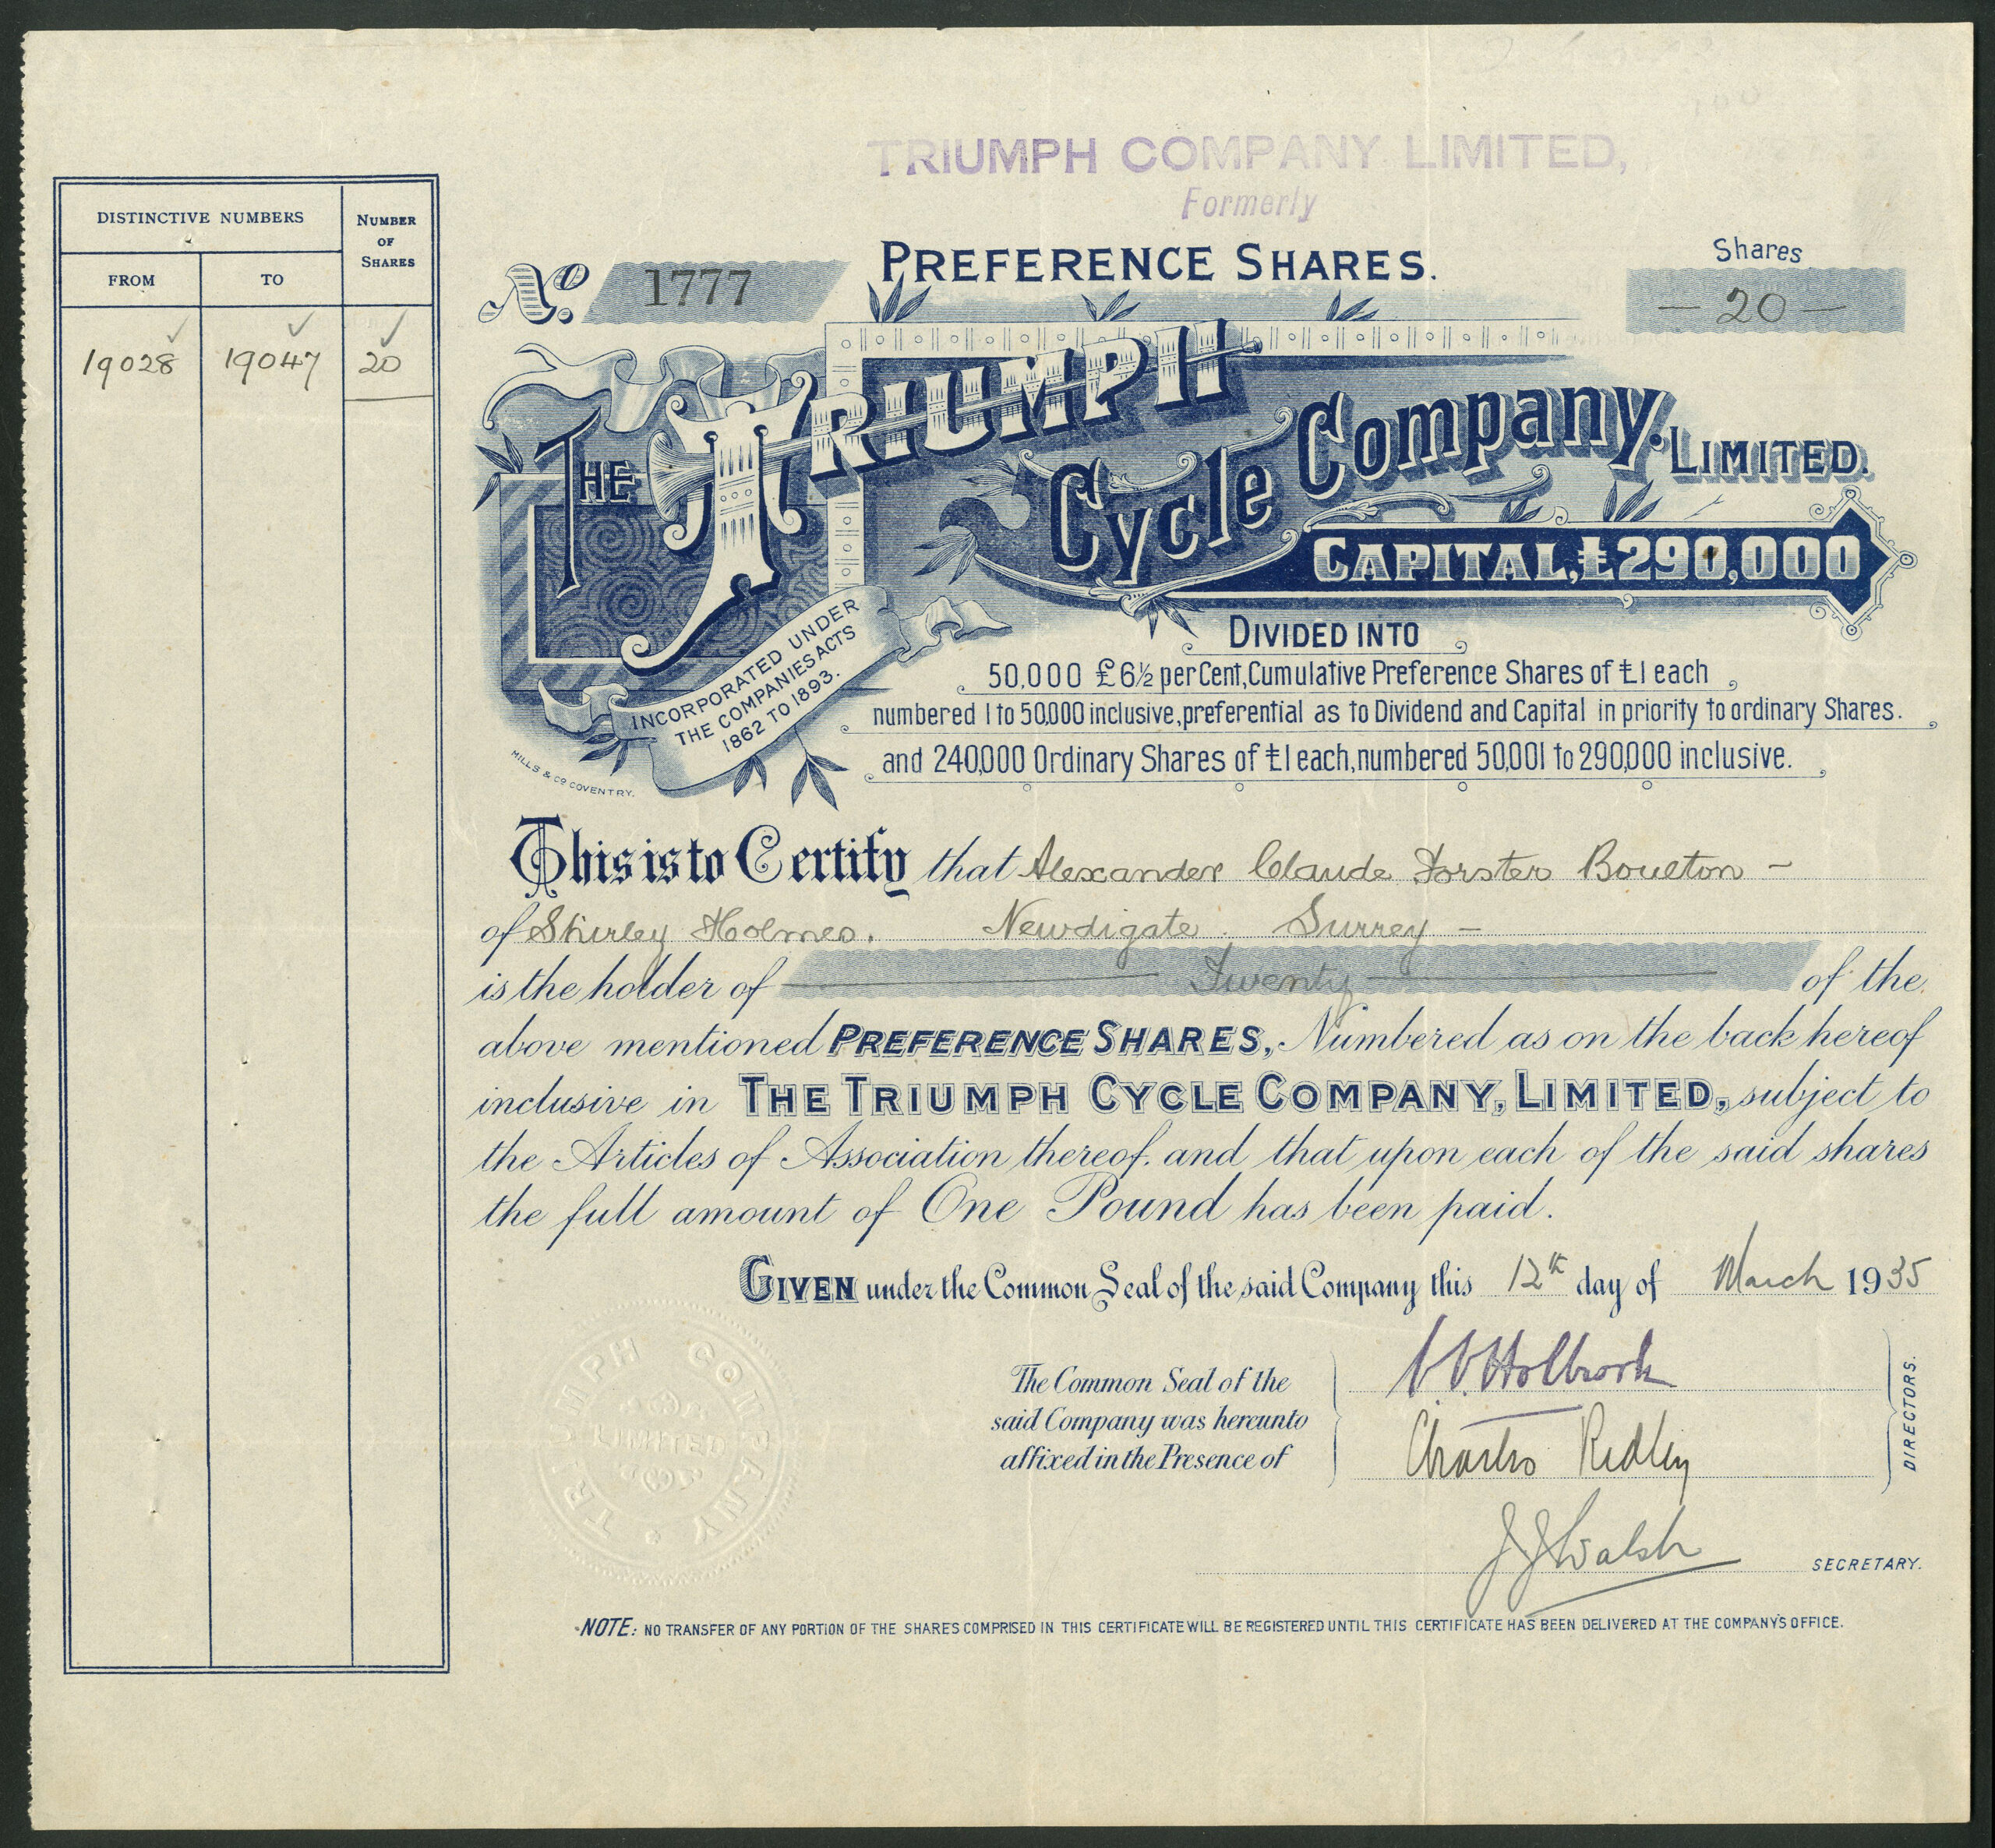 TRIUMPH COMPANY LIMITED,
Formerly
PREFERENCE SHARES.
No. 1777
Shares
— 20 —
DISTINCTIVE NUMBERS
NUMBER OF SHARES
FROM TO
19028 19047 20
THE TRIUMPH
Cycle Company. LIMITED.
CAPITAL, £290,000
INCORPORATED UNDER
THE COMPANIES ACTS
1862 TO 1893.
MILLS & Co COVENTRY.
DIVIDED INTO
50,000 £6½ per Cent, Cumulative Preference Shares of £1 each
numbered 1 to 50,000 inclusive, preferential as to Dividend and Capital in priority to ordinary Shares.
and 240,000 Ordinary Shares of £1 each, numbered 50,001 to 290,000 inclusive.
This is to Certify that Alexander Claude Forster Boulton –
of Shirley Holmes. Newdigate. Surrey –
is the holder of Twenty of the
above mentioned PREFERENCE SHARES, Numbered as on the back hereof
inclusive in THE TRIUMPH CYCLE COMPANY, LIMITED, subject to
the Articles of Association thereof. and that upon each of the said shares
the full amount of One Pound has been paid.
GIVEN under the Common Seal of the said Company this 12th day of March 1935
The Common Seal of the
said Company was hereunto
affixed in the Presence of
Holbrook
Charles Ridley
DIRECTORS.
J J Walsh
SECRETARY.
TRIUMPH COMPANY
LIMITED
NOTE: NO TRANSFER OF ANY PORTION OF THE SHARES COMPRISED IN THIS CERTIFICATE WILL BE REGISTERED UNTIL THIS CERTIFICATE HAS BEEN DELIVERED AT THE COMPANY'S OFFICE.